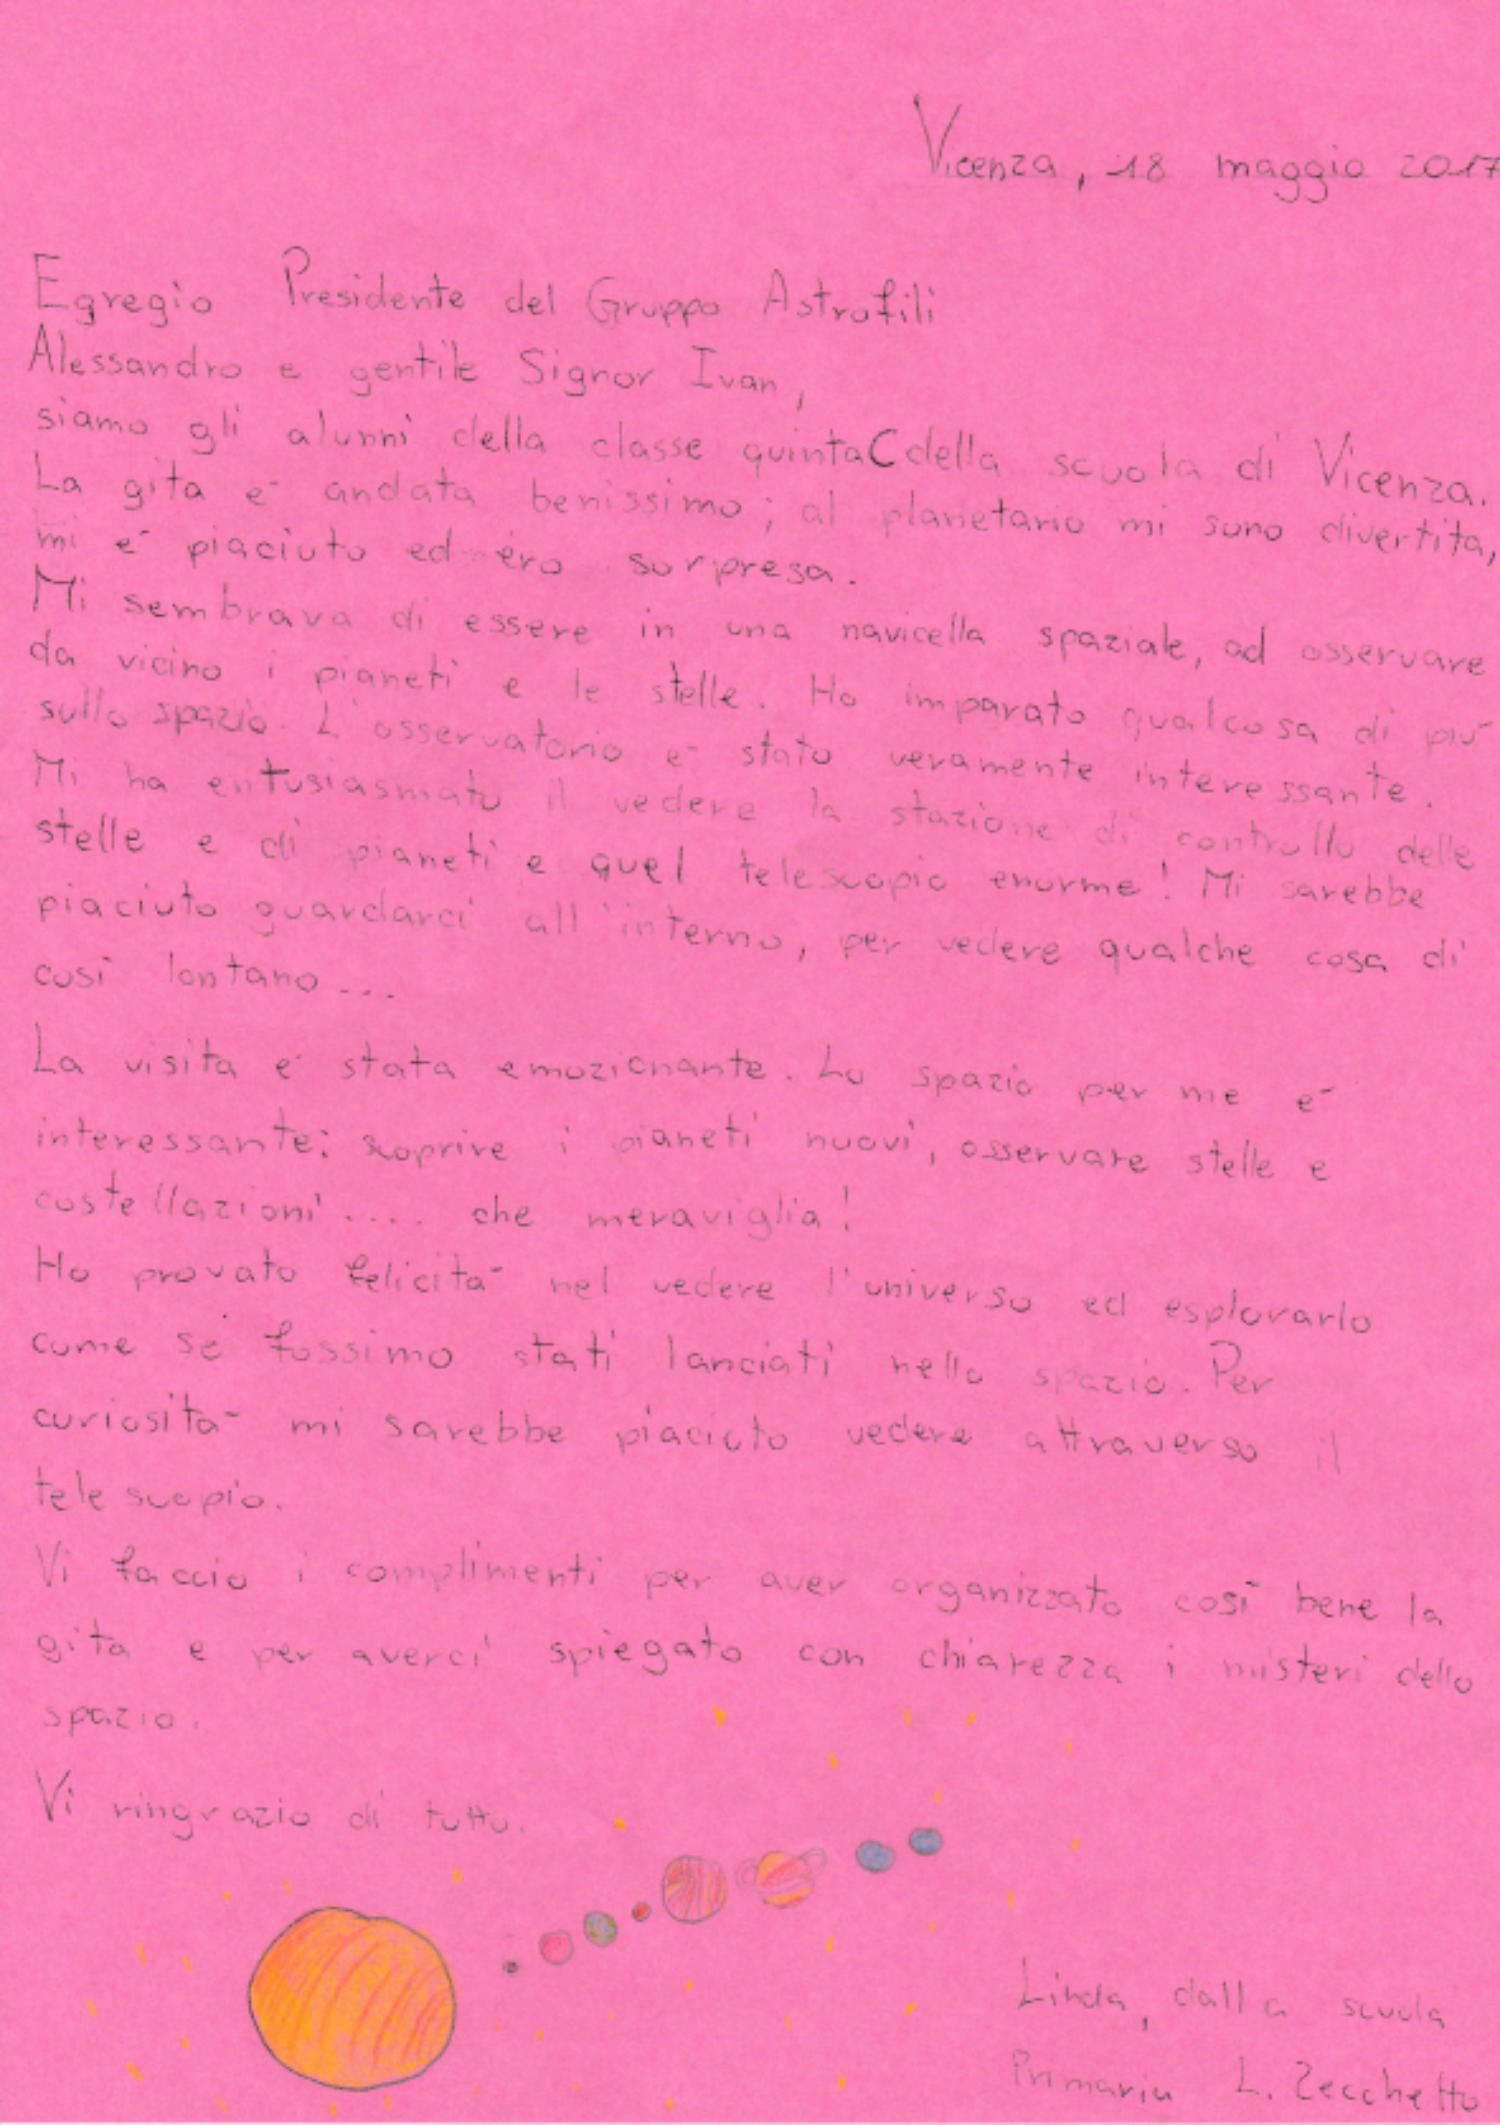 Vicenza, 18 maggio 2017
Egregio Presidente del Gruppo Astrofili
Alessandro e gentile Signor Ivan,
siamo gli alunni della classe quinta C della scuola di Vicenza.
La gita è andata benissimo; al planetario mi sono divertita,
mi è piaciuto ed ero sorpresa.
Mi sembrava di essere in una navicella spaziale, ad osservare
da vicino i pianeti e le stelle. Ho imparato qualcosa di più
sullo spazio. L'osservatorio è stato veramente interessante.
Mi ha entusiasmato il vedere la stazione di controllo delle
stelle e di pianeti e quel telescopio enorme! Mi sarebbe
piaciuto guardarci all'interno, per vedere qualche cosa di
così lontano...
La visita è stata emozionante. Lo spazio per me è
interessante: scoprire i pianeti nuovi, osservare stelle e
costellazioni.... che meraviglia!
Ho provato felicità nel vedere l'universo ed esplorarlo
come se fossimo stati lanciati nello spazio. Per
curiosità mi sarebbe piaciuto vedere attraverso il
telescopio.
Vi faccio i complimenti per aver organizzato così bene la
gita e per averci spiegato con chiarezza i misteri dello
spazio.
Vi ringrazio di tutto.
Linda, dalla scuola
Primaria L. Zecchetto